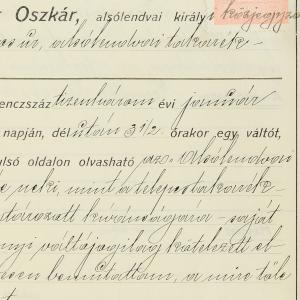 r Oszkár, alsólendvai királyi közjegyző
os úr, alsólendvai takarék-
enczszáz tizenhárom évi január
napján, délután 3 1/2 órakor egy váltót,
ulsó oldalon olvasható azo. Alsólendvai
e neki, mint a telepes takarék-
saját
nyi váltójogilag kötelezett el
esen bemutattam, a mire tőle